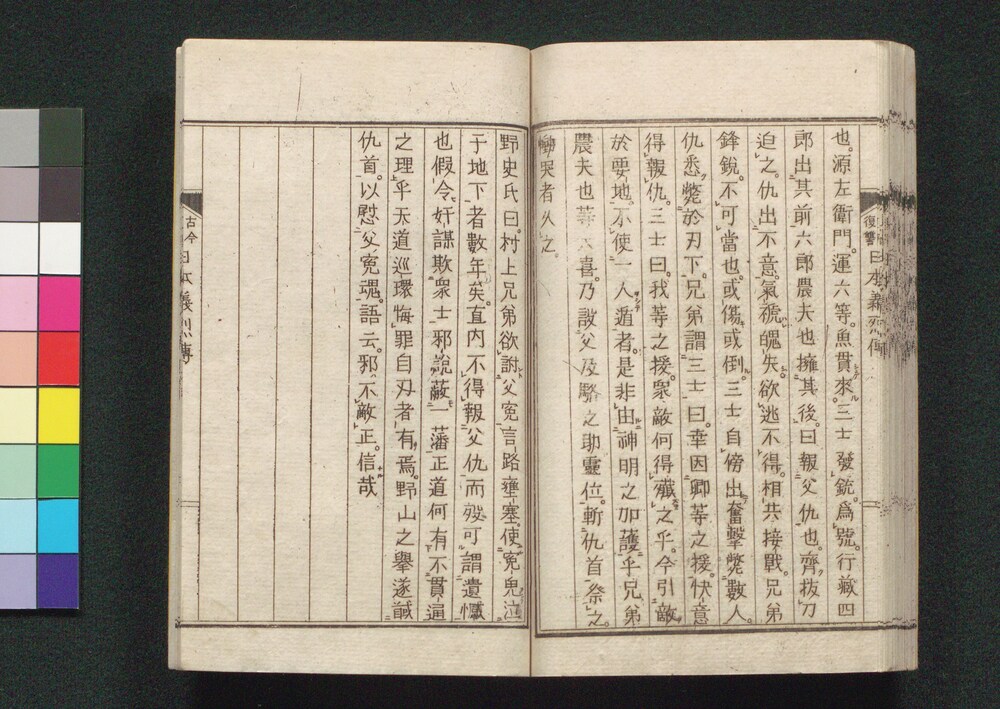 也。源左衛門。運六等。魚貫來。三士發銃。爲號。行藏四
郎出其前六郎農夫也擁其後。曰報父仇也。齊拔刀
迫之。仇出不意。氣褫魄失。欲逃不得。相共接戰。兄弟
鋒銳。不可當也。或傷或倒。三士自傍出奮擊斃數人。
仇悉斃於刃下。兄弟謂三士曰。幸因卿等之援。快意
得報仇。三士曰。我等之援。衆敵何得殱之乎。今引敵
於要地。不使一人遁者。是非由神明之加護乎兄弟
農夫也等大喜。乃設父及駱之助靈位。斬仇首祭之。
慟哭者久之。
野史氏曰。村上兄弟欲訴父寃言路壅塞。使寃鬼泣
于地下者數年矣。直内不得報父仇而歿可謂遺憾
也假令奸謀欺衆士邪說蔽一藩正道何有不貫通
之理乎天道巡環悔罪自刃者有焉。野山之擧遂馘
仇首。以慰父寃魂。語云。邪不敵正。信哉
復讐
日本義烈傳
古今
日本義烈傳